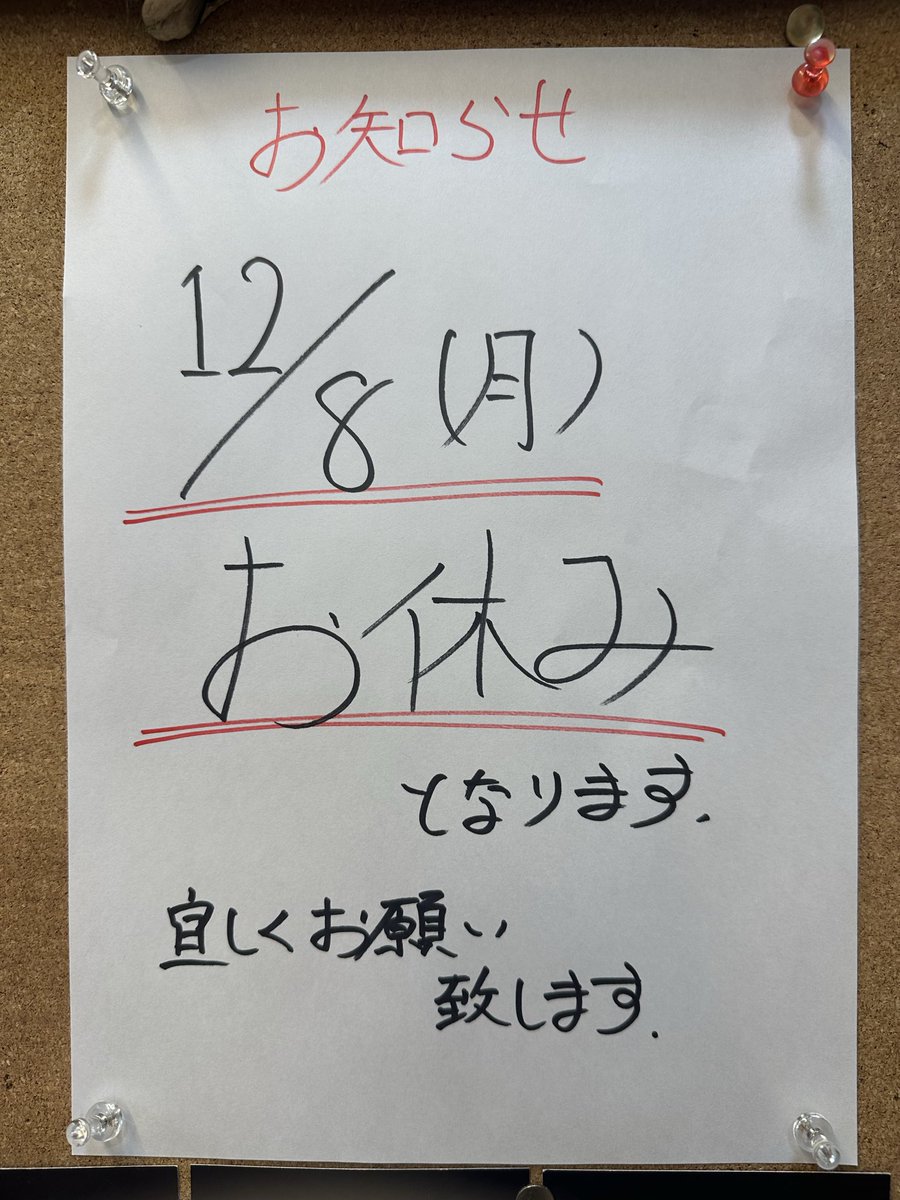 お知らせ
12/8(月)
お休み
となります.
宜しくお願い
致します.